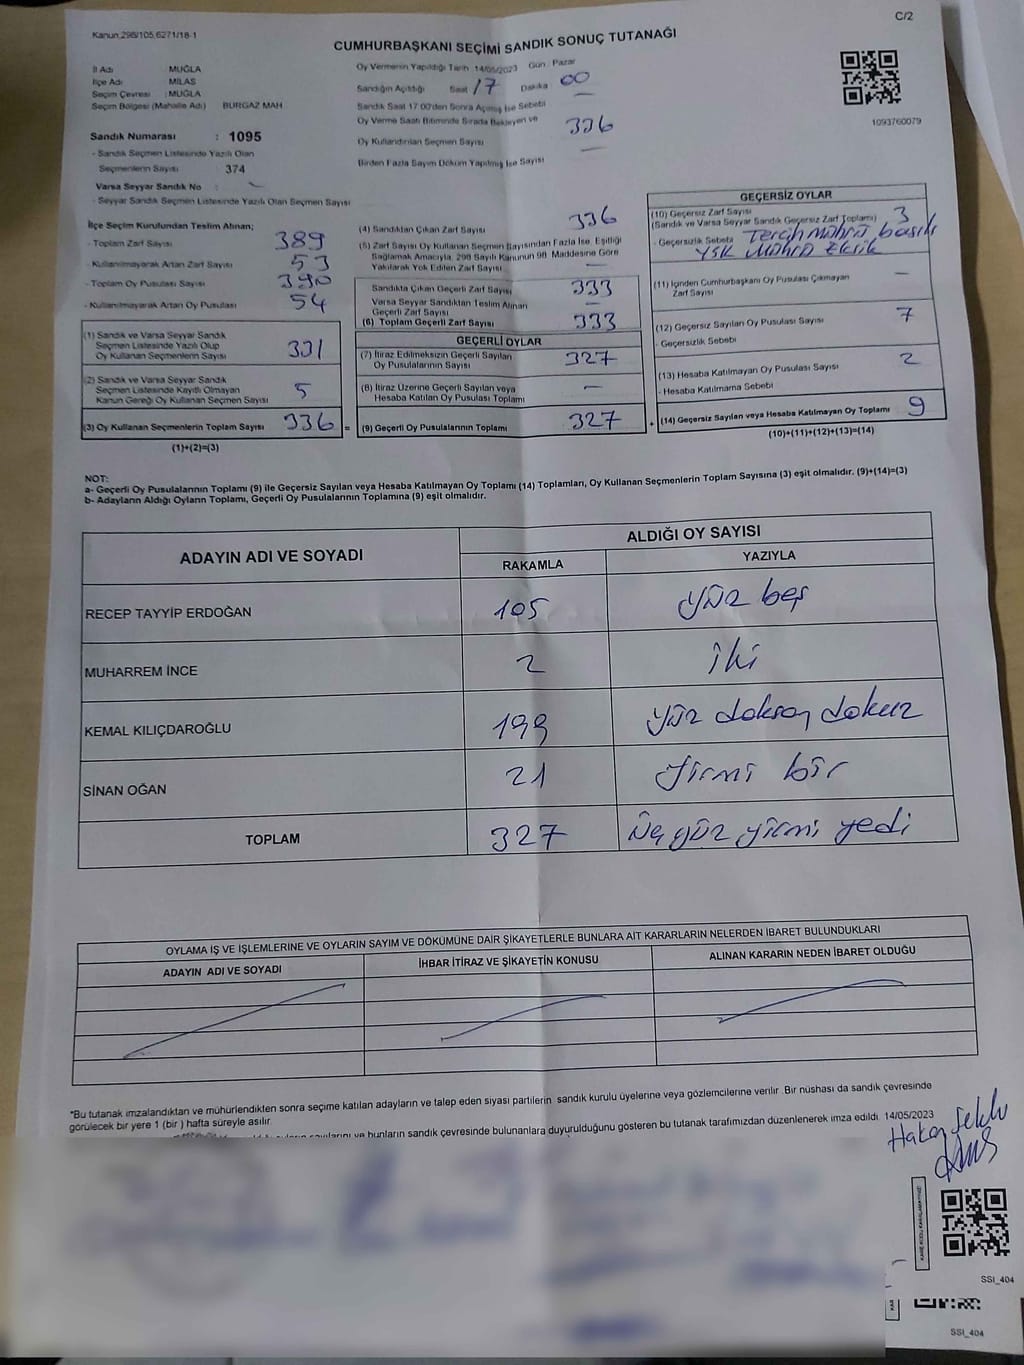 C/2
Kanun,298/105,6271/18-1
CUMHURBAŞKANI SEÇİMİ SANDIK SONUÇ TUTANAĞI
İl Adı MUĞLA
İlçe Adı MİLAS
Seçim Çevresi : MUĞLA
Seçim Bölgesi (Mahalle Adı) BURGAZ MAH
Sandık Numarası : 1095
- Sandık Seçmen Listesinde Yazılı Olan
Seçmenlerin Sayısı 374
Varsa Seyyar Sandık No :
- Seyyar Sandık Seçmen Listesinde Yazılı Olan Seçmen Sayısı
Oy Vermenin Yapıldığı Tarih 14/05/2023 Gün : Pazar
Sandığın Açıldığı Saat 17 Dakika 00
Sandık Saat 17.00'den Sonra Açılmış İse Sebebi
Oy Verme Saati Bitiminde Sırada Bekleyen ve
Oy Kullandırılan Seçmen Sayısı 336
Birden Fazla Sayım Döküm Yapılmış İse Sayısı
1093760079
İlçe Seçim Kurulundan Teslim Alınan;
- Toplam Zarf Sayısı 389
- Kullanılmayarak Artan Zarf Sayısı 53
- Toplam Oy Pusulası Sayısı 390
- Kullanılmayarak Artan Oy Pusulası 54
(1) Sandık ve Varsa Seyyar Sandık
Seçmen Listesinde Yazılı Olup
Oy Kullanan Seçmenlerin Sayısı 331
(2) Sandık ve Varsa Seyyar Sandık
Seçmen Listesinde Kayıtlı Olmayan
Kanun Gereği Oy Kullanan Seçmen Sayısı 5
(3) Oy Kullanan Seçmenlerin Toplam Sayısı 336 =
(1)+(2)=(3)
(4) Sandıktan Çıkan Zarf Sayısı 336
(5) Zarf Sayısı Oy Kullanan Seçmen Sayısından Fazla İse, Eşitliği
Sağlamak Amacıyla, 298 Sayılı Kanunun 98. Maddesine Göre
Yakılarak Yok Edilen Zarf Sayısı —
Sandıkta Çıkan Geçerli Zarf Sayısı 333
Varsa Seyyar Sandıktan Teslim Alınan
Geçerli Zarf Sayısı —
(6) Toplam Geçerli Zarf Sayısı 333
GEÇERLİ OYLAR
(7) İtiraz Edilmeksizin Geçerli Sayılan
Oy Pusulalarının Sayısı 327
(8) İtiraz Üzerine Geçerli Sayılan veya
Hesaba Katılan Oy Pusulası Toplamı —
(9) Geçerli Oy Pusulalarının Toplamı 327 +
GEÇERSİZ OYLAR
(10) Geçersiz Zarf Sayısı
(Sandık ve Varsa Seyyar Sandık Geçersiz Zarf Toplamı) 3
- Geçersizlik Sebebi Tercih Mührü basılı
YSK Mührü Eksik
(11) İçinden Cumhurbaşkanı Oy Pusulası Çıkmayan
Zarf Sayısı —
(12) Geçersiz Sayılan Oy Pusulası Sayısı 7
- Geçersizlik Sebebi
(13) Hesaba Katılmayan Oy Pusulası Sayısı 2
- Hesaba Katılmama Sebebi
(14) Geçersiz Sayılan veya Hesaba Katılmayan Oy Toplamı 9
(10)+(11)+(12)+(13)=(14)
NOT:
a- Geçerli Oy Pusulalarının Toplamı (9) ile Geçersiz Sayılan veya Hesaba Katılmayan Oy Toplamı (14) Toplamları, Oy Kullanan Seçmenlerin Toplam Sayısına (3) eşit olmalıdır. (9)+(14)=(3)
b- Adayların Aldığı Oyların Toplamı, Geçerli Oy Pusulalarının Toplamına (9) eşit olmalıdır.
ADAYIN ADI VE SOYADI ALDIĞI OY SAYISI
RAKAMLA YAZIYLA
RECEP TAYYİP ERDOĞAN 105 yüz beş
MUHARREM İNCE 2 iki
KEMAL KILIÇDAROĞLU 199 yüz doksan dokuz
SİNAN OĞAN 21 yirmi bir
TOPLAM 327 üç yüz yirmi yedi
OYLAMA İŞ VE İŞLEMLERİNE VE OYLARIN SAYIM VE DÖKÜMÜNE DAİR ŞİKAYETLERLE BUNLARA AİT KARARLARIN NELERDEN İBARET BULUNDUKLARI
ADAYIN ADI VE SOYADI İHBAR İTİRAZ VE ŞİKAYETİN KONUSU ALINAN KARARIN NEDEN İBARET OLDUĞU
*Bu tutanak imzalandıktan ve mühürlendikten sonra seçime katılan adayların ve talep eden siyasi partilerin sandık kurulu üyelerine veya gözlemcilerine verilir. Bir nüshası da sandık çevresinde
görülecek bir yere 1 (bir) hafta süreyle asılır.
sayılarını ve bunların sandık çevresinde bulunanlara duyurulduğunu gösteren bu tutanak tarafımızdan düzenlenerek imza edildi. 14/05/2023
Hakan
SSI_404
SSI_404